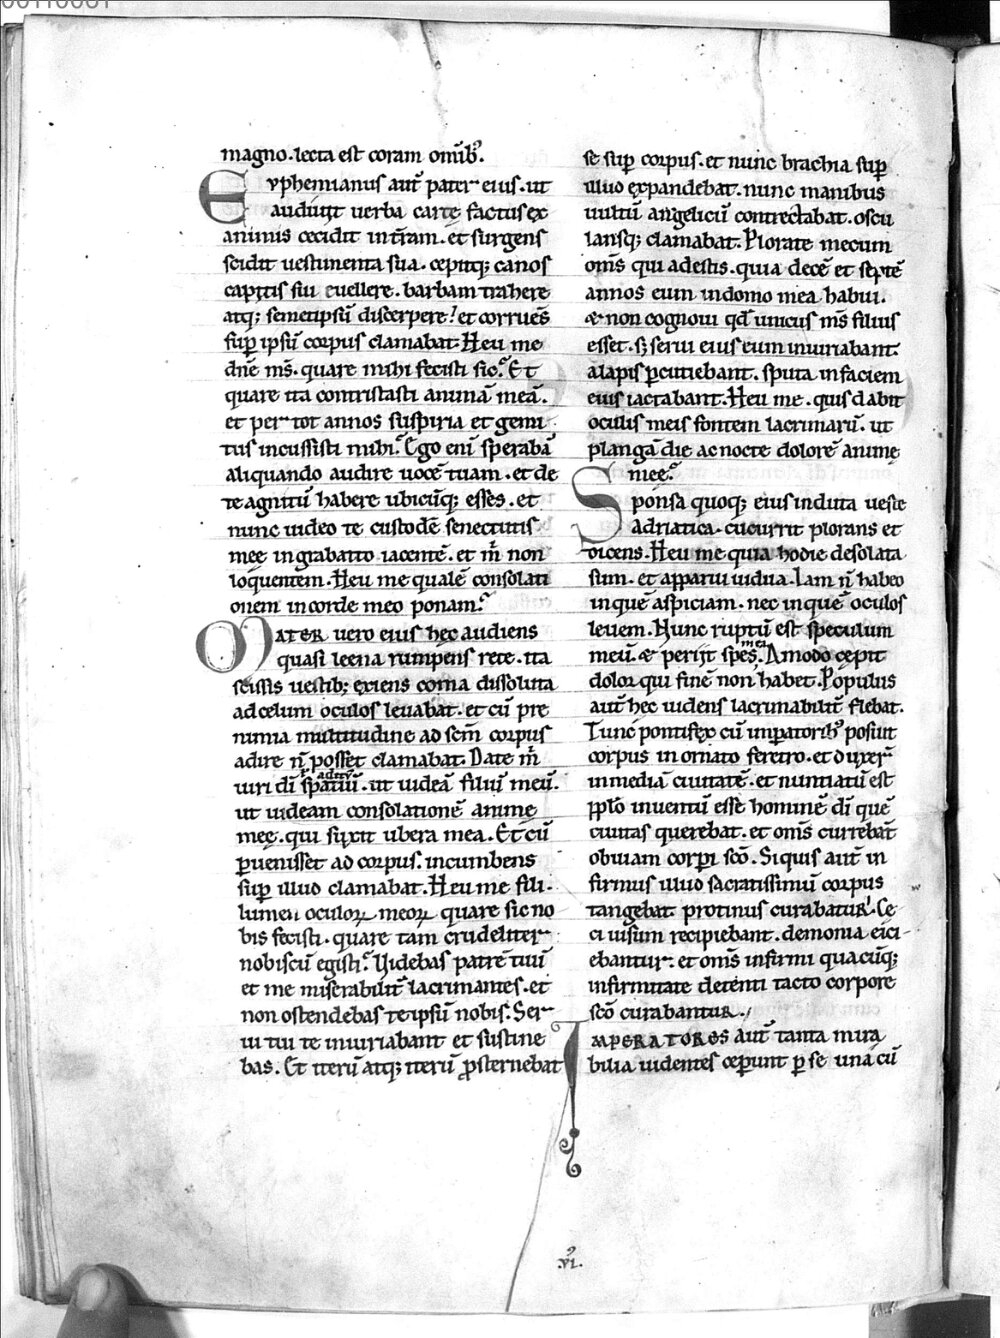 magno. lecta est coram omīb᷒.
Evphemianus aut̄ pater eius. ut
audiuit uerba carte factus ex
animis cecidit in t̄ram. et surgens
scidit uestimenta sua. cepitq; canos
capitis sui euellere. barbam trahere
atq; semetipsū discerpere! et corruēs
sup̄ ipsū corpus clamabat. Heu me
dn̄e ms̄. quare mihi fecisti sic? Et
quare ita contristasti animā meā.
et per tot annos suspiria et gemi
tus incussisti mihi? Ego enī sperabā
aliquando audire uocē tuam. et de
te agnitū habere ubicūq; esses. et
nunc uideo te custodē senectutis
meę in grabatto iacentē. et m̄ non
loquentem. Heu me qualē consolati
onem in corde meo ponam?
Mater uero eius hęc audiens
quasi leena rumpens rete. ita
scissis uestib; exiens coma dissoluta
ad celum oculos leuabat. et cū pre
nimia multitudine ad sc̄m corpus
adire n̄ posset clamabat. Date m̄
uiri dī spatiū. ut uideā filiū meū.
ut uideam consolationē anime
meę. qui suxit ubera mea. Et cū
p̱uenisset ad corpus. incumbens
sup̄ illud clamabat. Heu me fili.
lumen oculoꝝ meoꝝ quare sic no
bis fecisti. quare tam crudeliter
nobiscū egisti? Videbas patrē tuū
et me miserabilit̄ lacrimantes. et
non ostendebas te ipsū nobis. Ser
ui tui te iniuriabant et sustine
bas. Et iterū atq; iterū ꝓsternebat
se sup̄ corpus. et nunc brachia sup̄
illud expandebat. nunc manibus
uultū angelicū contrectabat. oscu
lansq; clamabat. Plorate mecum
oms̄ qui adestis. quia decē et septē
annos eum in domo mea habui.
& non cognoui qd̄ unicus ms̄ filius
esset. s; serui eius eum iniuriabant.
alapis ꝑcutiebant. sputa in faciem
eius iactabant. Heu me. quis dabit
oculis meis fontem lacrimarū. ut
plangā die ac nocte dolorē anime
meę?
Sponsa quoq; eius induta ueste
adriatica. cucurrit plorans et
dicens. Heu me quia hodie desolata
sum. et apparui uidua. Iam n̄ habeo
in quē aspiciam. nec in quē oculos
leuem. Nunc ruptū est speculum
meū. & perijt spes mea. Amodo cepit
dolor qui finē non habet. Populus
aut̄ hec uidens lacrimabilit̄ flebat.
Tunc pontifex cū imꝑatorib᷒ posuit
corpus in ornato feretro. et duxer̄
in mediā ciuitatē. et nuntiatū est
pp̄lo inuentū esse hominē dī quē
ciuitas querebat. et oms̄ currebāt
obuiam corpi sc̄o. Siquis aut̄ in
firmus illud sacratissimū corpus
tangebat protinus curabatur. Ce
ci uisum recipiebant. demonia eici
ebantur. et oms̄ infirmi quacūq;
infirmitate detenti tacto corpore
sc̄o curabantur.
Imperatores aut̄ tanta mira
bilia uidentes ceperunt ꝑ se una cū
.vi᷒.